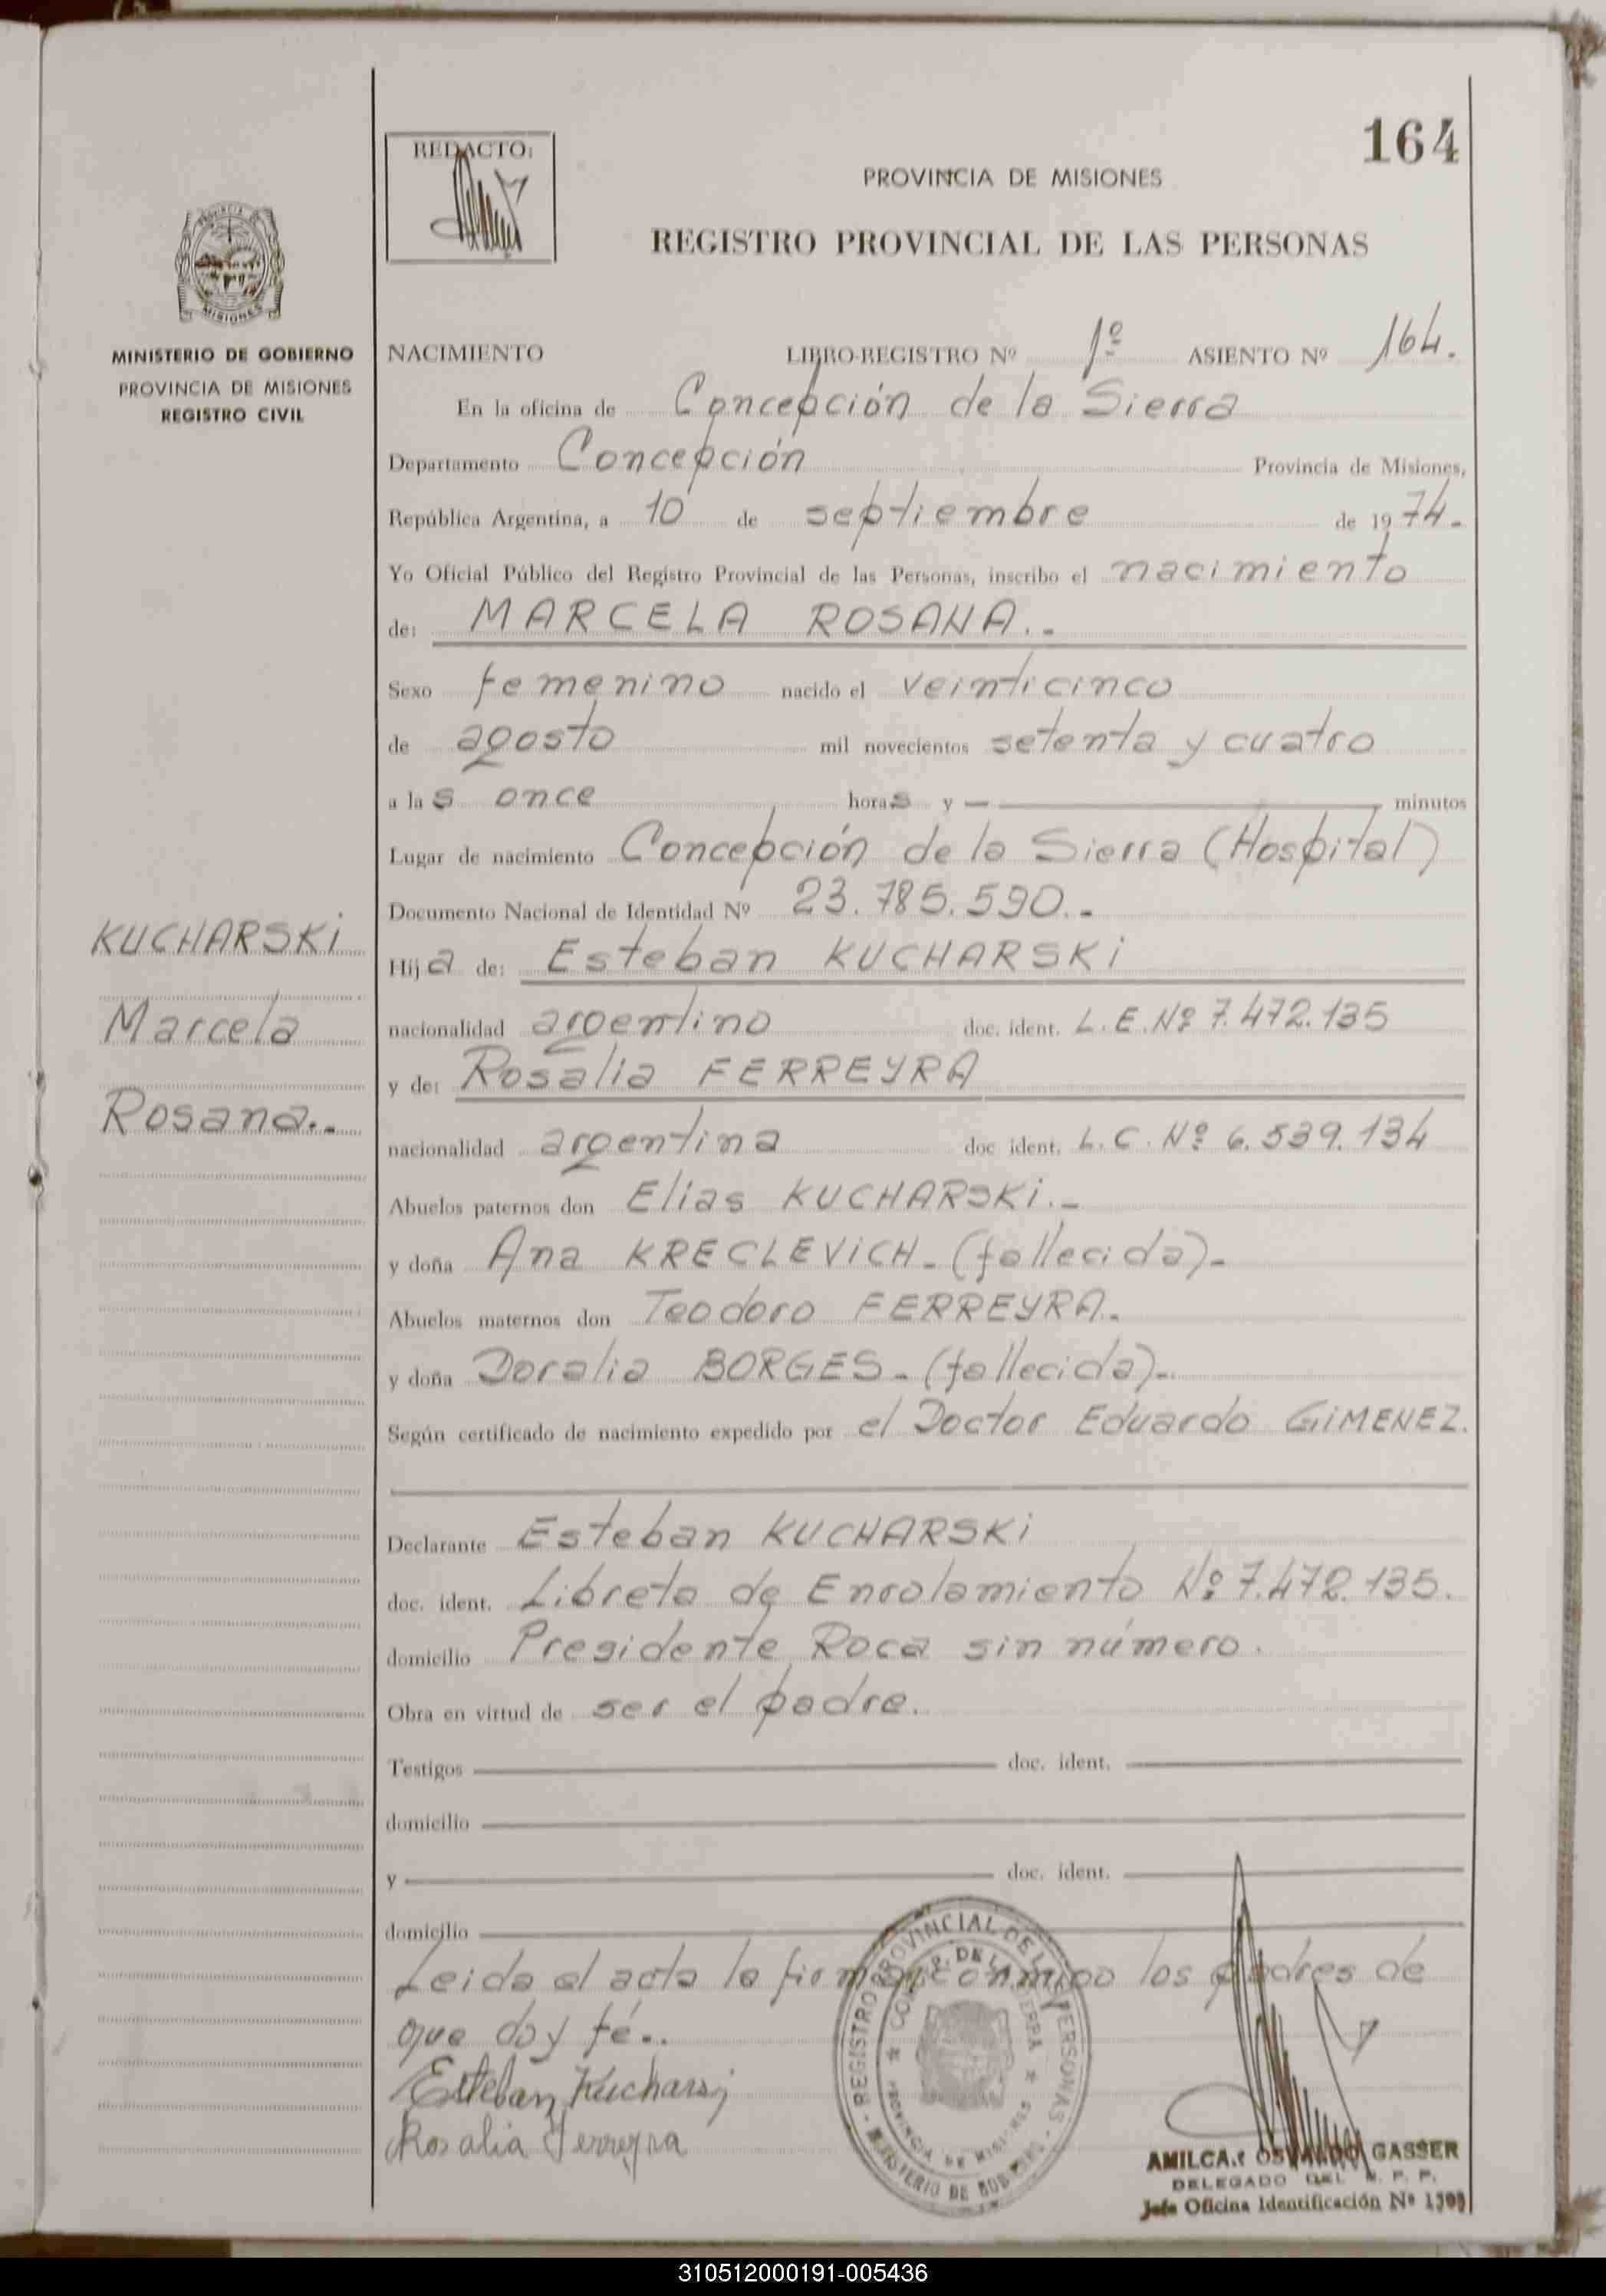 164
REDACTO:
PROVINCIA DE MISIONES
REGISTRO PROVINCIAL DE LAS PERSONAS
MISIONES
MINISTERIO DE GOBIERNO
PROVINCIA DE MISIONES
REGISTRO CIVIL
NACIMIENTO LIBRO-REGISTRO Nº 1º ASIENTO Nº 164.
En la oficina de Concepción de la Sierra
Departamento Concepción Provincia de Misiones,
República Argentina, a 10 de septiembre de 1974.-
Yo Oficial Público del Registro Provincial de las Personas, inscribo el nacimiento
de: MARCELA ROSANA.-
Sexo femenino nacido el veinticinco
de agosto mil novecientos setenta y cuatro
a las once horas y — minutos
Lugar de nacimiento Concepción de la Sierra (Hospital)
Documento Nacional de Identidad Nº 23.785.590.-
KUCHARSKi
Marcela
Rosana.-
Hija de: Esteban KUCHARSKi
nacionalidad argentino doc. ident. L.E.Nº 7.472.135
y de: Rosalia FERREYRA
nacionalidad argentina doc ident. L.C. Nº 6.539.134
Abuelos paternos don Elias KUCHARSKi.-
y doña Ana KRECLEViCH-(fallecida)-
Abuelos maternos don Teodoro FERREYRA.-
y doña Doralia BORGES-(fallecida)-.
Según certificado de nacimiento expedido por el Doctor Eduardo GiMENEZ.
Declarante Esteban KUCHARSKi
doc. ident. Libreta de Enrolamiento Nº 7.472.135.
domicilio Presidente Roca sin número.
Obra en virtud de ser el padre.
Testigos doc. ident.
domicilio
y doc. ident.
domicilio
Leida el acta la firman conmigo los padres de
que doy fé..
Esteban Kucharsi
Rosalia Ferreyra
REGISTRO PROVINCIAL DE LAS PERSONAS
MINISTERIO DE GOBIERNO
PROVINCIA DE MISIONES
AMILCAR OSVALDO GASSER
DELEGADO DEL R. P. P.
Jefe Oficina Identificación Nº
310512000191-005436